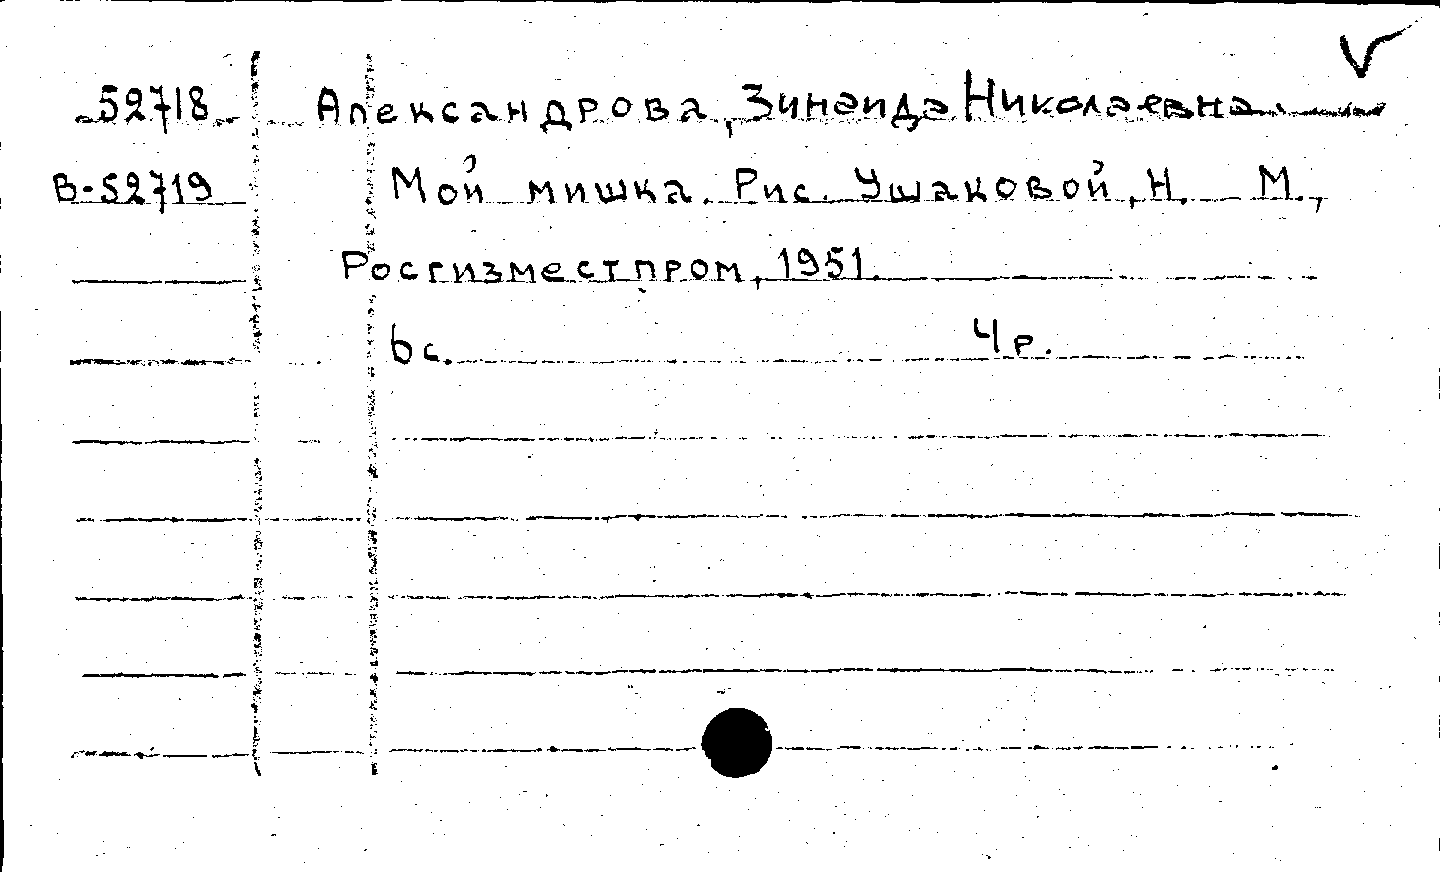 52718 Александрова, Зинаида Николаевна.
В-52719 Мой мишка. Рис. Ушаковой, Н. М.,
Росгизместпром, 1951.
6с. 4р.